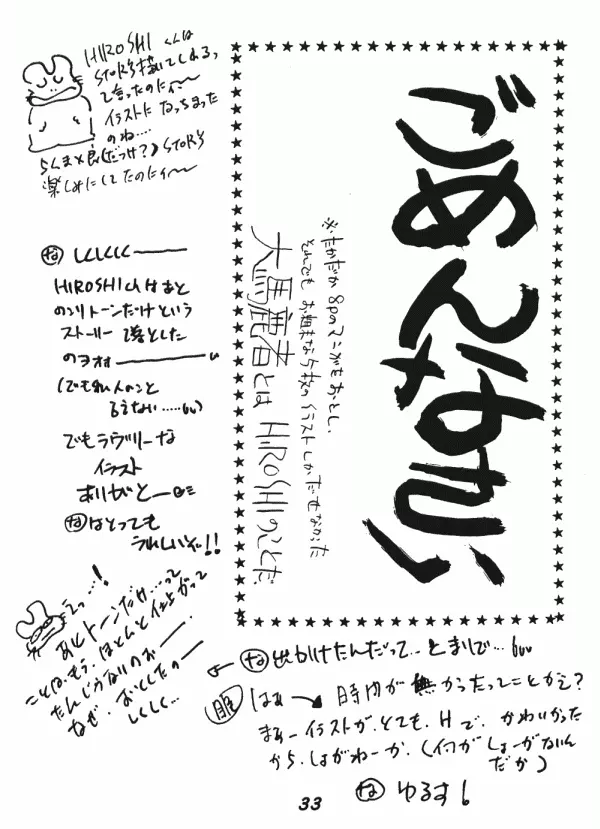 HIROSHIくんは
STORY描いてしるっ
て言ったのにィ〜
イラストに なっちまった
のね……
らくまみ良(だっけ?) STORY
楽しみにしてたのにィ〜
ごめんなさい
※たかだか8Pのマンガもおとし、
とれでも お粗末な5枚の イラストしかだせなかった
大馬鹿者とは HIROSHIのことだ
な しくしくしく―
HIROSHIくんはあと
のこりトーンだけという
ストーリー を落とした
のヨオォ―
(でも私人のこと
言えない……)
でもラヴリーな
イラスト
ありがとー
な はとっても
うれしいぞ!!
えっ…!
あとトーンだけ……って
ことは、もう、ほとんど仕上がって
たんじゃないのぉー
なぜ、おとしたのー
しくしく…
な 出かけたんだって…とまりで…
はぁ → 時間が無かったってことかえ?
まあーイラストが、とても、Hで、かわいかった
から、しょがねーか、(何がしょーがないん
だか)
な ゆるす
33